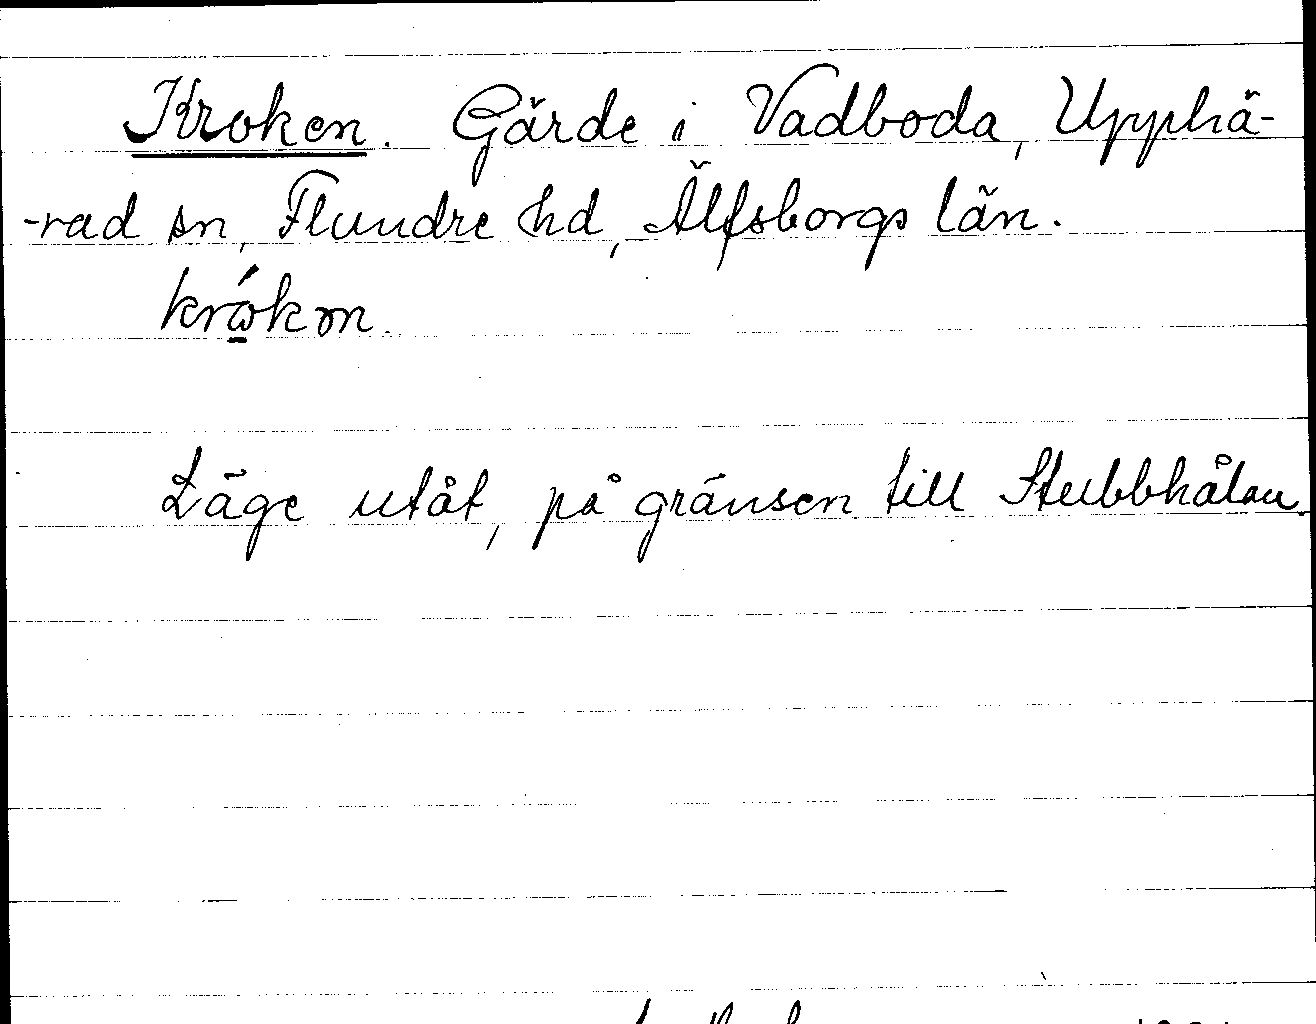 Kroken. Gärde i Vadboda, Upphä-
-rad sn, Flundre hd, Älfsborgs län.
Läge utåt, på gränsen till Stubbhålan.